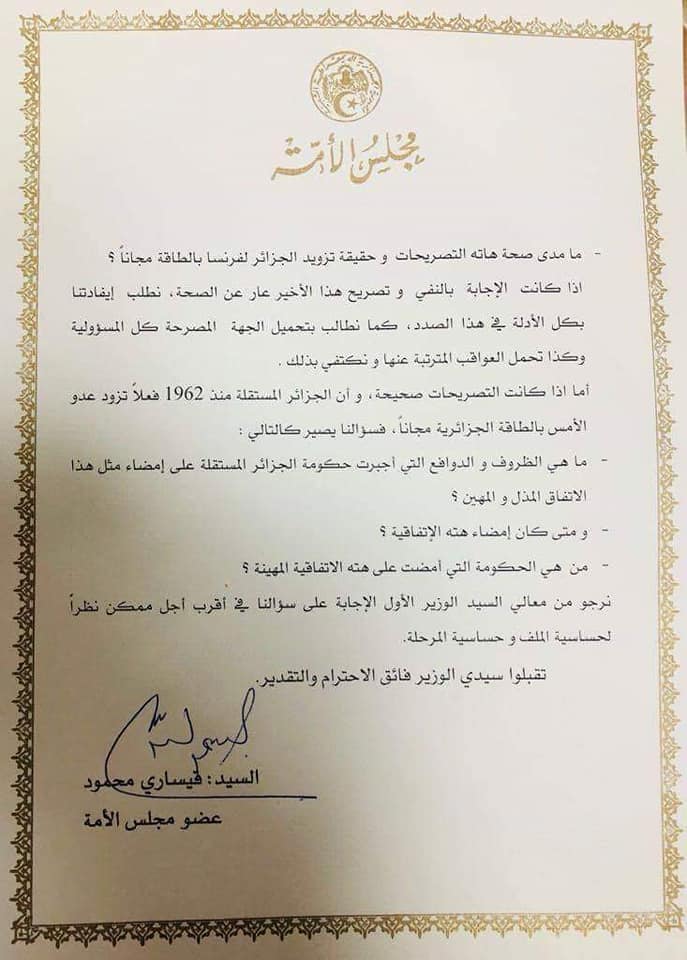 مجلس الأمة
- ما مدى صحة هاته التصريحات و حقيقة تزويد الجزائر لفرنسا بالطاقة مجاناً ؟
اذا كانت الإجابة بالنفي و تصريح هذا الأخير عار عن الصحة، نطلب إيفادتنا
بكل الأدلة في هذا الصدد، كما نطالب بتحميل الجهة المصرحة كل المسؤولية
وكذا تحمل العواقب المترتبة عنها و نكتفي بذلك .
أما اذا كانت التصريحات صحيحة، و أن الجزائر المستقلة منذ 1962 فعلاً تزود عدو
الأمس بالطاقة الجزائرية مجاناً، فسؤالنا يصير كالتالي :
- ما هي الظروف و الدوافع التي أجبرت حكومة الجزائر المستقلة على إمضاء مثل هذا
الاتفاق المذل و المهين ؟
- و متى كان إمضاء هته الإتفاقية ؟
- من هي الحكومة التي أمضت على هته الاتفاقية المهينة ؟
نرجو من معالي السيد الوزير الأول الإجابة على سؤالنا في أقرب أجل ممكن نظراً
لحساسية الملف و حساسية المرحلة.
تقبلوا سيدي الوزير فائق الاحترام والتقدير.
السيد: قيساري محمود
عضو مجلس الأمة